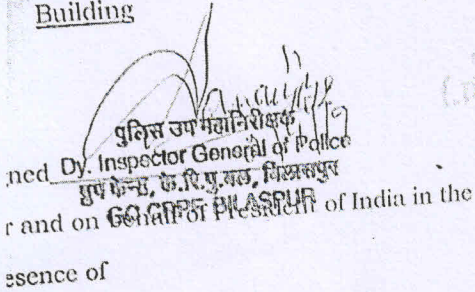 Building
पुलिस उप महानिरीक्षक
ned Dy. Inspector General of Police
ग्रुप केन्द्र, के.रि.पु.बल, बिलासपुर
GC CRPF BILASPUR
r and on Behalf of President of India in the
esence of